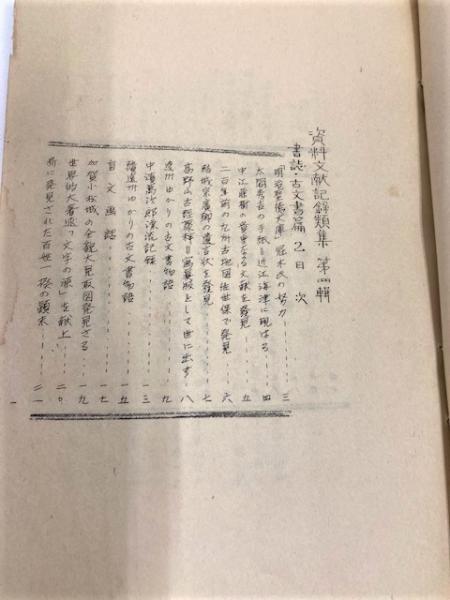 資料文献記録類集 第四輯
書誌・古文書篇2 目次
「明治聖徳文庫」堀木氏の努力 三
太閤秀吉の手紙近江海津に現はる 四
中江藤樹の貴重なる文献を発見 五
二百年前の九州古地図佐世保で発見 六
結城宗広卿の遺言状を発見 七
高野山古経蒐粋に写真版として世に出す 八
遠州ゆかりの古文書物語 九
中浜万次郎漂流記録 一三
続遠州ゆかりの古文書物語 一五
盲文画話 一七
加賀小松城の全観大見取図発見さる 一九
世界的大著述「文字の源」を献上 二〇
新に発見された百姓一揆の顛末 二一
一